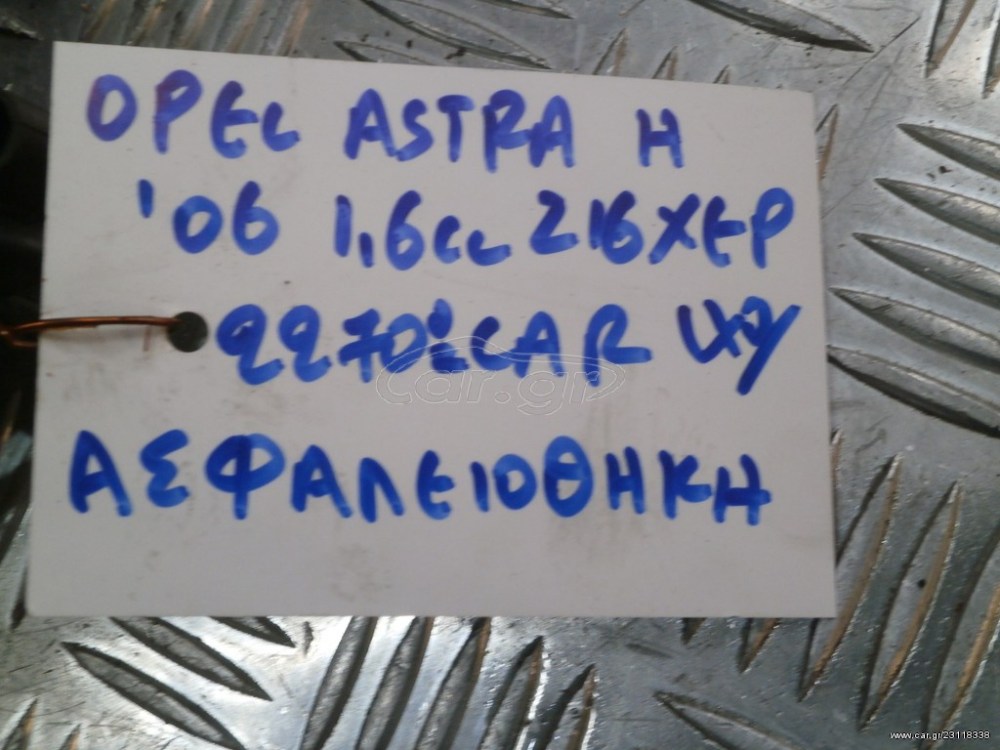 OPEL ASTRA H
'06 1,6cc Z16XEP
ΑΣΦΑΛΕΙΟΘΗΚΗ
car.gr
www.car.gr/23118338